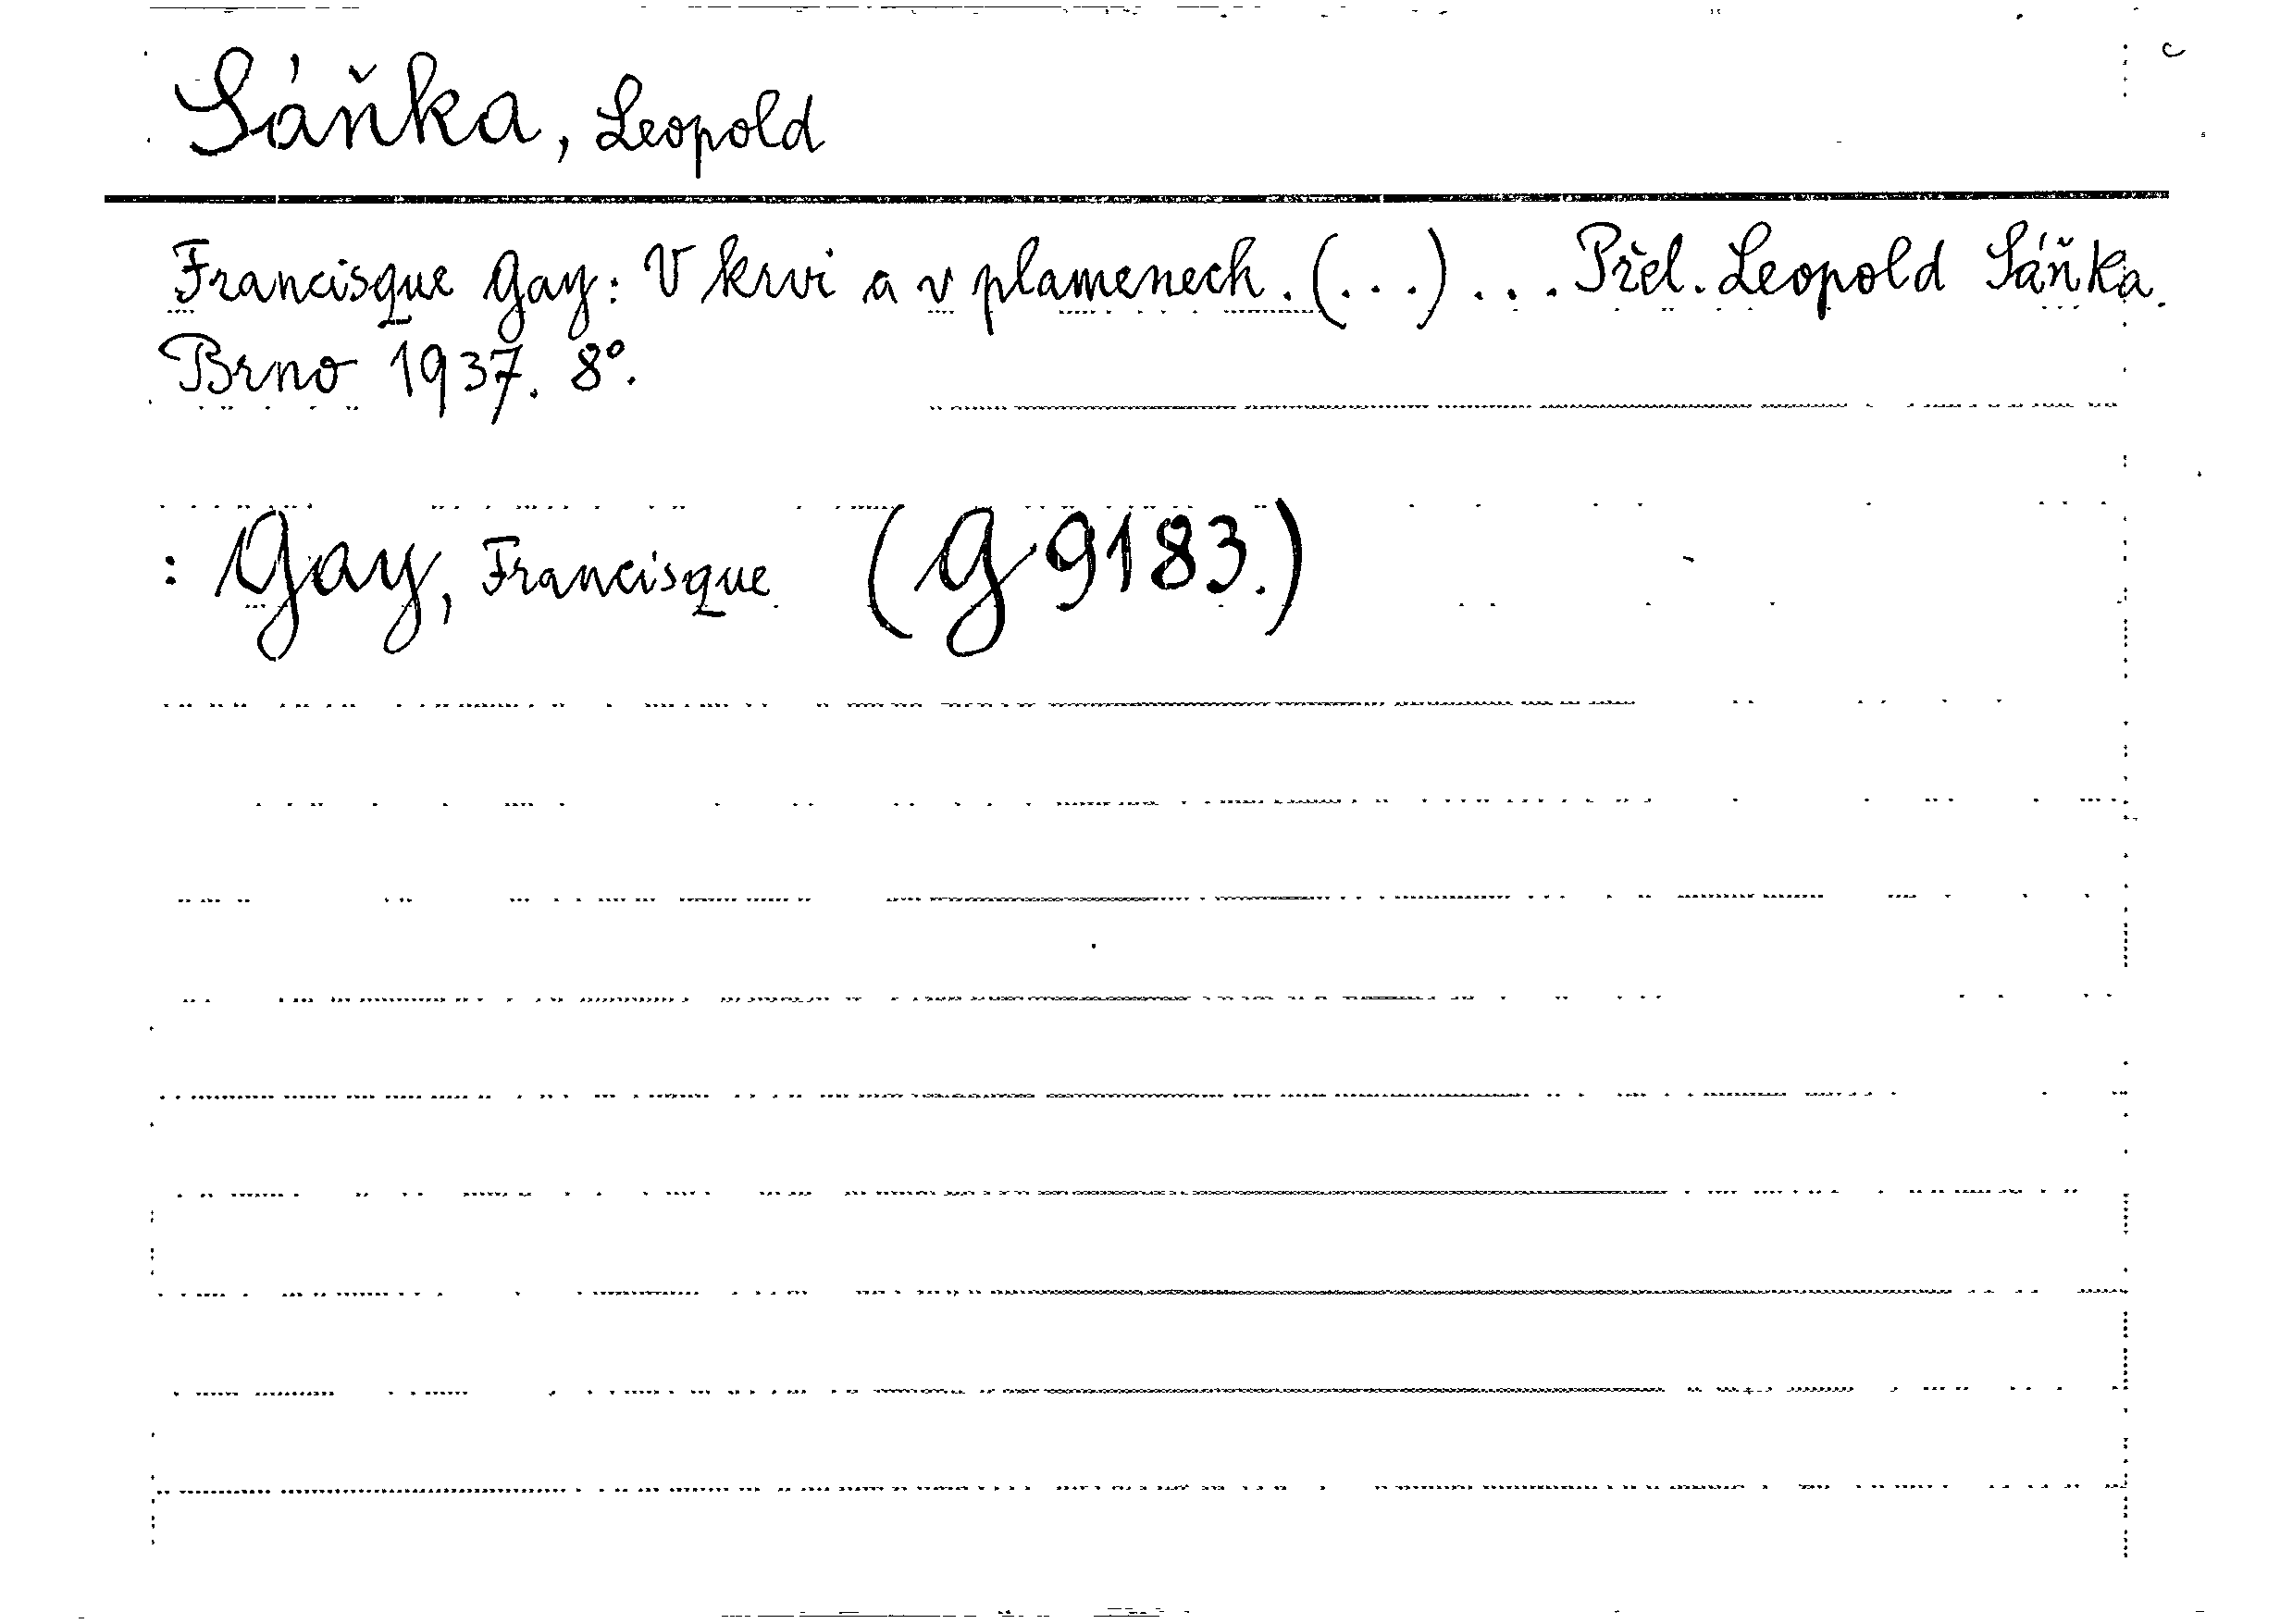 Sáňka, Leopold
Francisque Gay: V krvi a v plamenech. (...) ... Přel. Leopold Sáňka.
Brno 1937. 8°.
: Gay, Francisque (G 9183.)